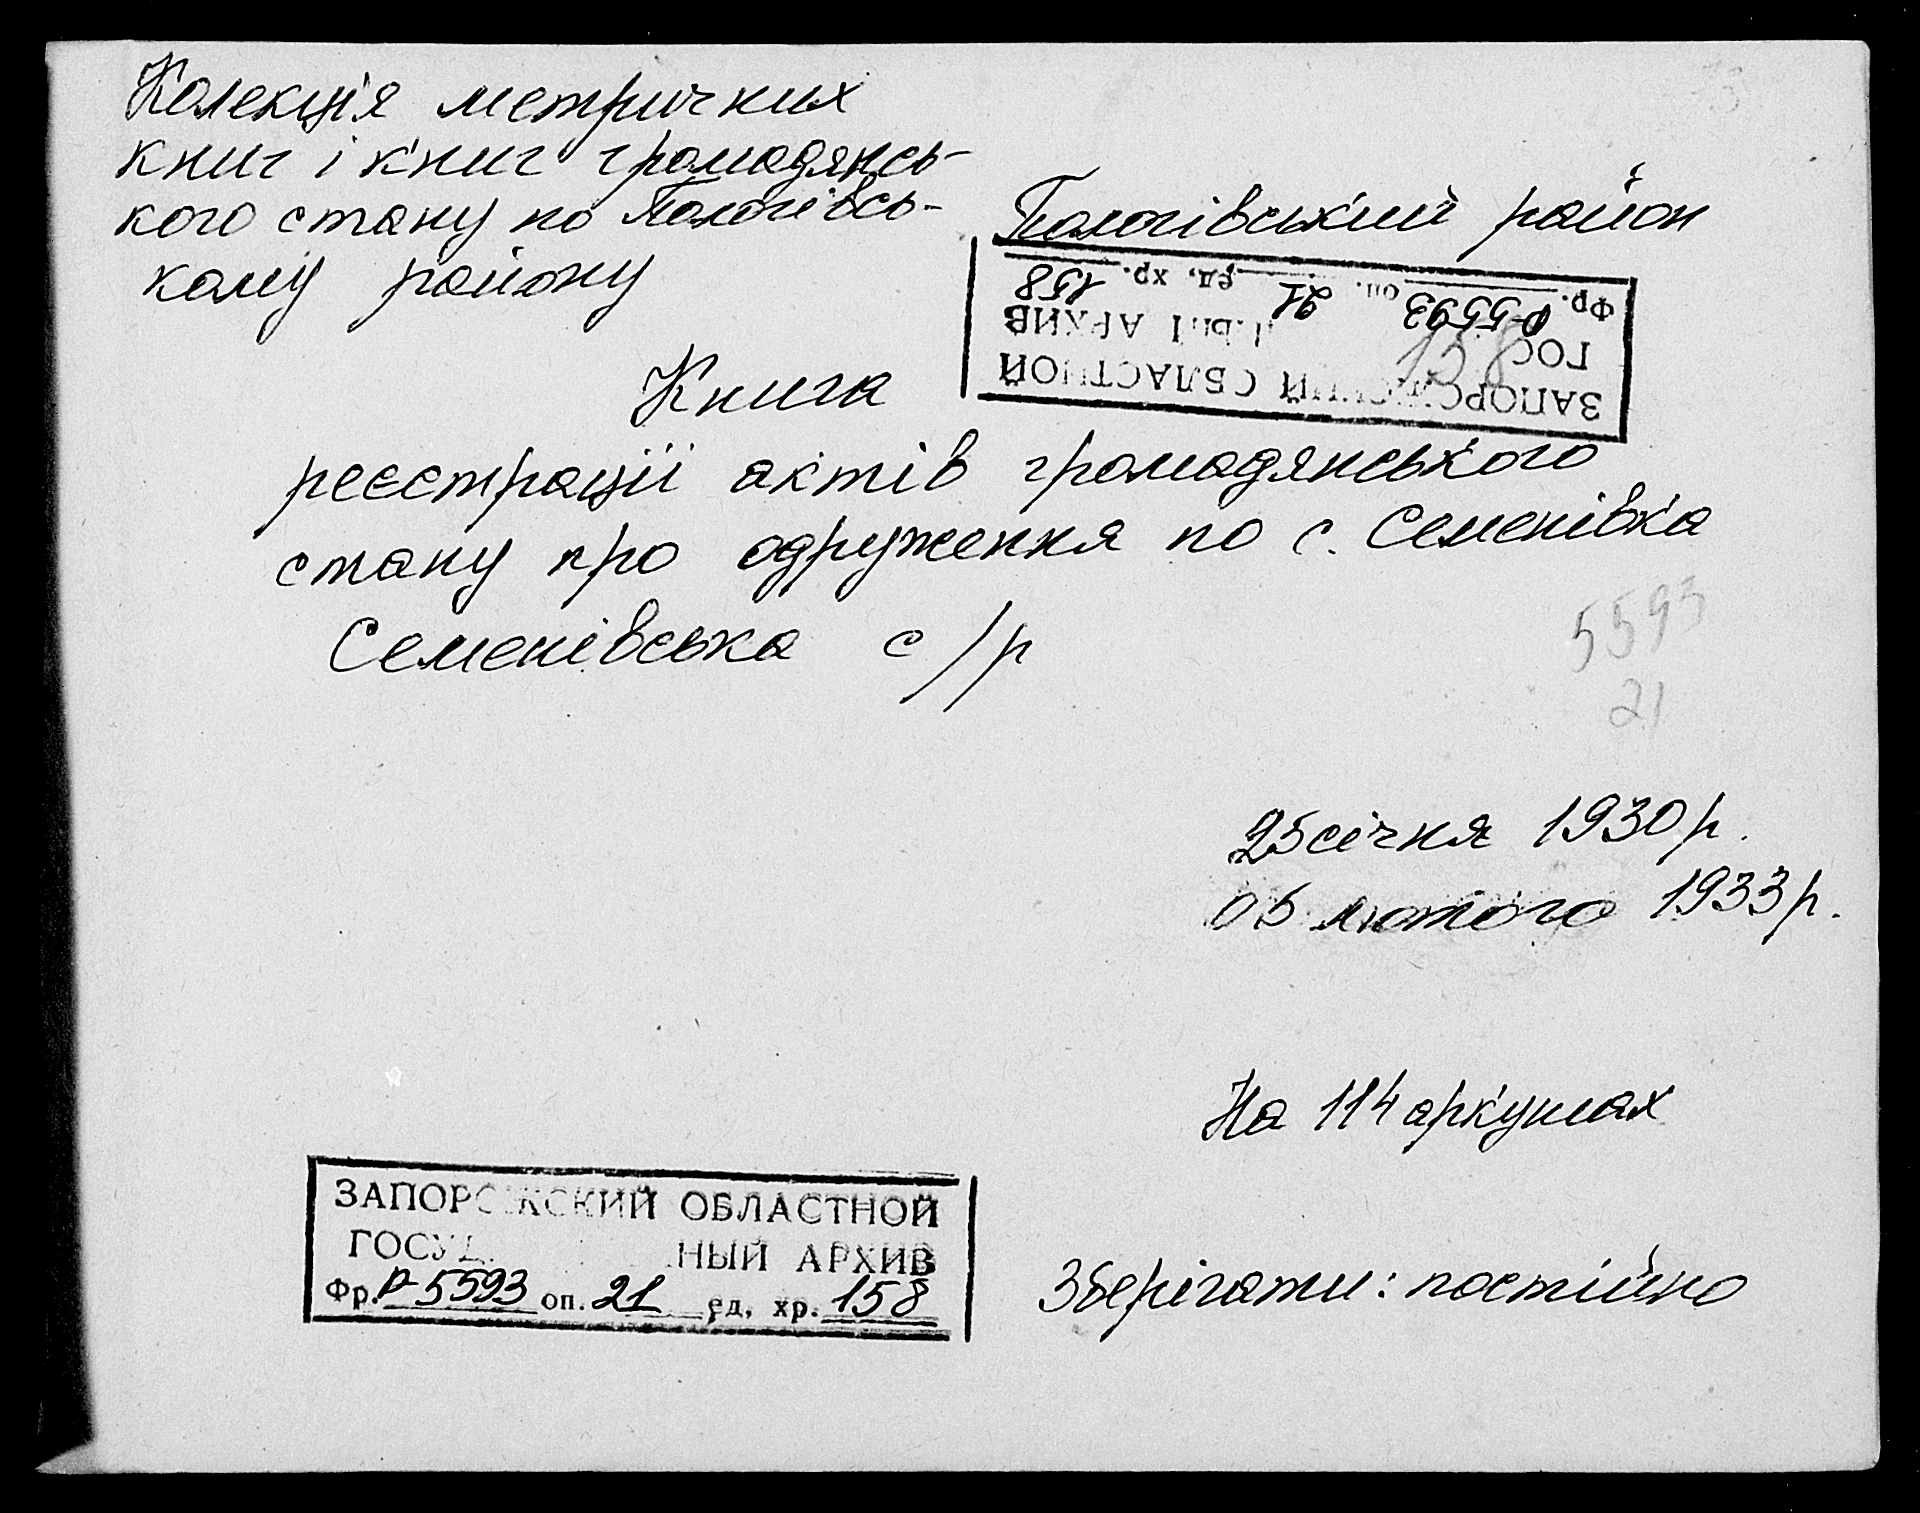 Колекція метричних
книг і книг громадянсь-
кого стану по Пологівсь-
кому району
Пологівський район
ЗАПОРОЖСКИЙ ОБЛАСТНОЙ
ГОС НЫЙ АРХИВ
Фр. Р-5593 оп. 21 ед. хр. 158
158
Книга
реєстрації актів громадянського
стану про одруження по с. Семенівка
Семенівська с/р
5593
21
25 січня 1930 р.
05 лютого 1933 р.
На 114 аркушах
ЗАПОРОЖСКИЙ ОБЛАСТНОЙ
ГОСУД НЫЙ АРХИВ
Фр. Р-5593 оп. 21 ед. хр. 158
Зберігати: постійно